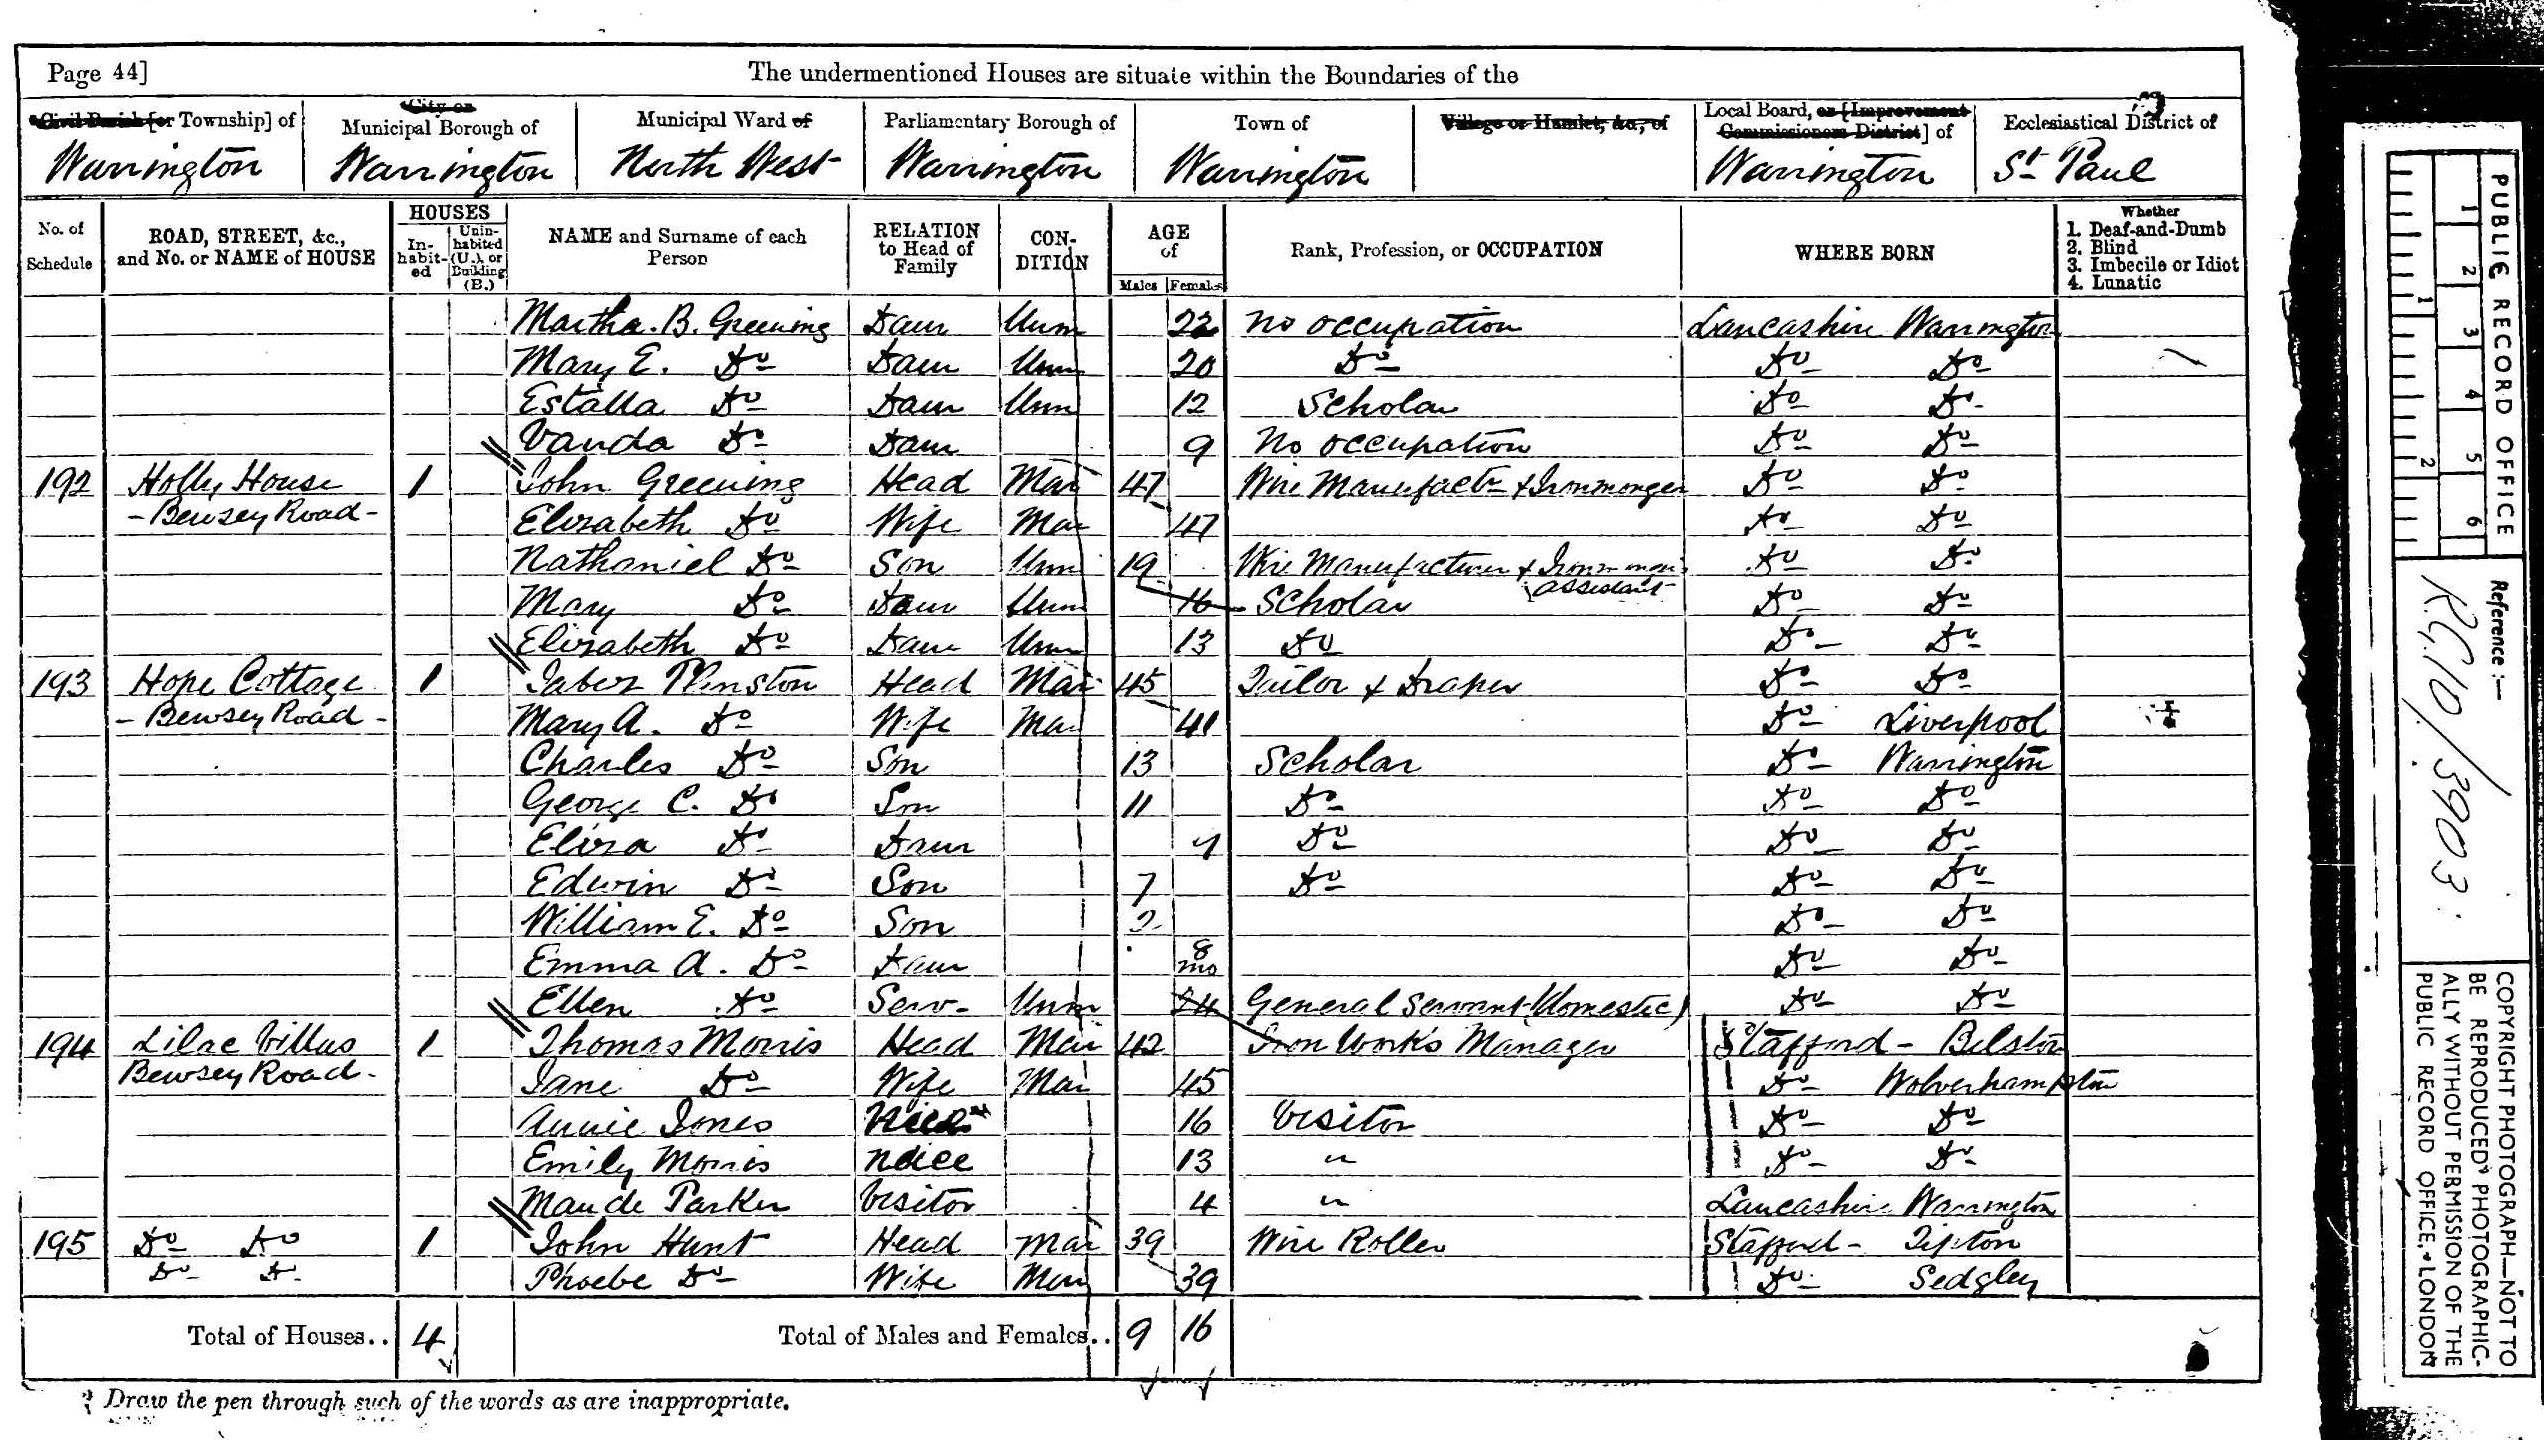 Page 44]
The undermentioned Houses are situate within the Boundaries of the
*Civil Parish [or Township] of
City or Municipal Borough of
Municipal Ward of
Parliamentary Borough of
Town of
Village or Hamlet, &c., of
Local Board, or [Improvement Commissioners District] of
Ecclesiastical District of
Warrington Warrington North West Warrington Warrington Warrington St Paul
No. of Schedule
ROAD, STREET, &c., and No. or NAME of HOUSE
HOUSES
In-habit-ed
Unin-habited (U.), or Building (B.)
NAME and Surname of each Person
RELATION to Head of Family
CON-DITION
AGE of
Males Females
Rank, Profession, or OCCUPATION
WHERE BORN
Whether
1. Deaf-and-Dumb
2. Blind
3. Imbecile or Idiot
4. Lunatic
Martha. B. Greening Daur Unm 22 No occupation Lancashire Warrington
Mary E. Do Daur Unm 20 Do Do Do
Estalla Do Daur Unm 12 Scholar Do Do
Vanda Do Daur 9 No occupation Do Do
192 Holly House 1 John Greening Head Mar 47 Wire Manufactr & Ironmonger Do Do
- Bewsey Road - Elizabeth Do Wife Mar 47 Do Do
Nathaniel Do Son Unm 19 Wire Manufacturer & Do Do
assistant
Mary Do Daur Unm 16 Scholar Do Do
Elizabeth Do Daur Unm 13 Do Do Do
193 Hope Cottage 1 Jabez Plinston Head Mar 45 Tailor & Draper Do Do
- Bewsey Road - Mary A. Do Wife Mar 41 Do Liverpool
Charles Do Son 13 Scholar Do Warrington
George C. Do Son 11 Do Do Do
Eliza Do Daur 9 Do Do Do
Edwin Do Son 7 Do Do Do
William E. Do Son 2 Do Do
Emma A. Do Daur 8 mo Do Do
Ellen Do Serv- Unm 24 General Servant (domestic) Do Do
194 Lilac Villas 1 Thomas Morris Head Mar 42 Iron Works Manager Stafford - Bilston
Bewsey Road - Jane Do Wife Mar 45 Do Wolverhampton
Annie Jones Niece 16 Visitor Do Do
Emily Morris Neice 13 " Do Do
Maude Parker Visitor 4 " Lancashire Warrington
195 Do Do 1 John Hunt Head Mar 39 Wire Roller Stafford - Tipton
Do Do Phoebe Do Wife Mar 39 Do Sedgley
Total of Houses.. 4 Total of Males and Females.. 9 16
* Draw the pen through such of the words as are inappropriate.
PUBLIC RECORD OFFICE
1 2 3 4 5 6
1 2
Reference :—
R.G. 10/3903
COPYRIGHT PHOTOGRAPH—NOT TO
BE REPRODUCED PHOTOGRAPHIC-
ALLY WITHOUT PERMISSION OF THE
PUBLIC RECORD OFFICE, LONDON